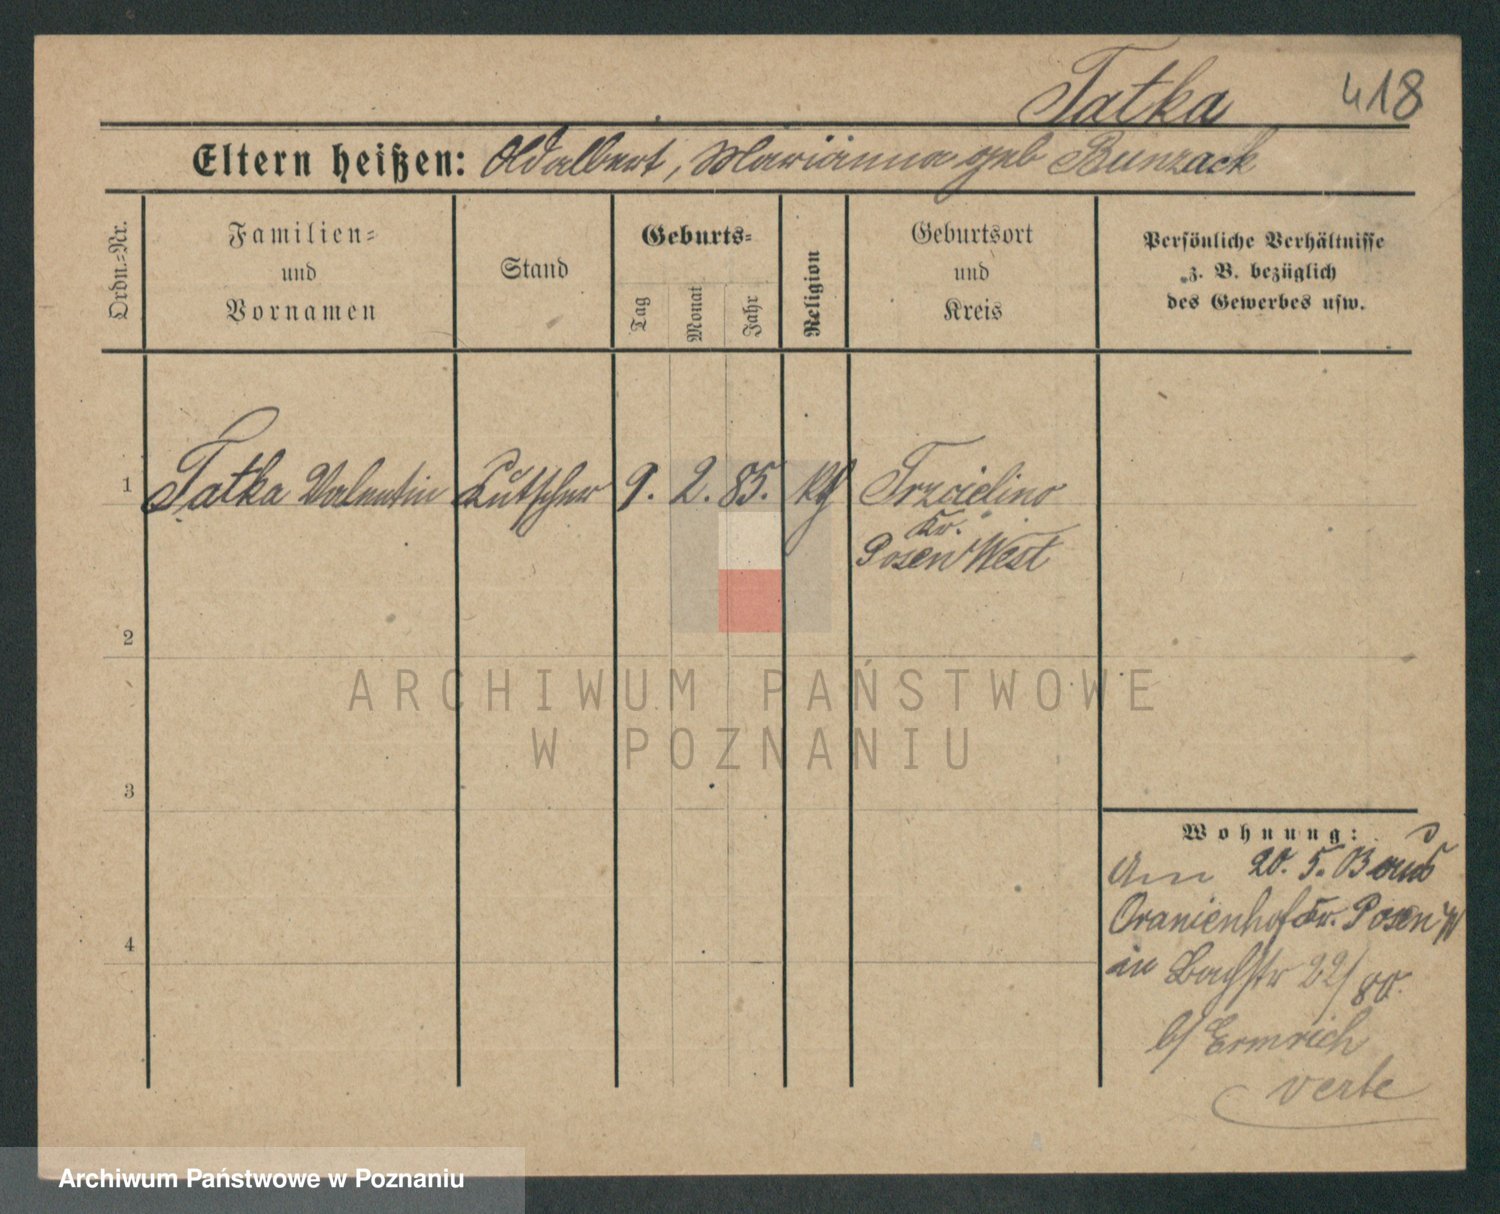 Tatka 418
Eltern heißen: Adalbert, Marianna geb Bunzack
Ordn.-Nr.
Familien-
und
Vornamen
Stand
Geburts-
Tag
Monat
Jahr
Religion
Geburtsort
und
Kreis
Persönliche Verhältnisse
z. B. bezüglich
des Gewerbes usw.
1 Tatka Valentin Kutscher 9. 2. 85. kth Trzcielino
Kr.
Posen West
2
3
4
Wohnung:
Am 20. 5. 03 aus
Oranienhof Kr. Posen W
in Bachstr 22/80.
b/ Ermrich
verte
ARCHIWUM PAŃSTWOWE
W POZNANIU
Archiwum Państwowe w Poznaniu